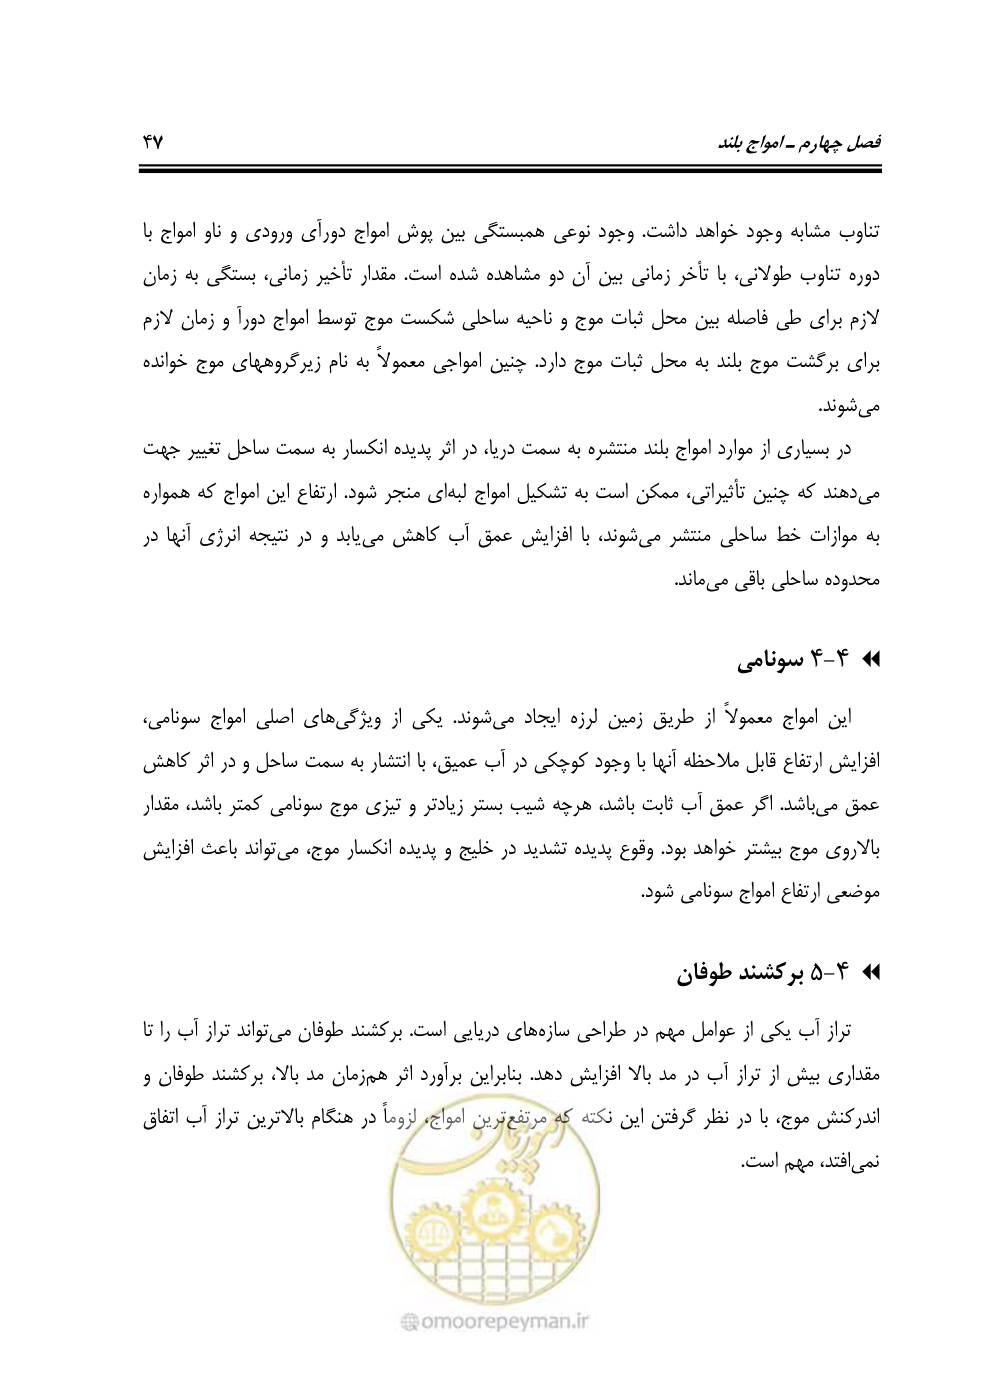 فصل چهارم ـ امواج بلند ۴۷
تناوب مشابه وجود خواهد داشت. وجود نوعی همبستگی بین پوش امواج دورآی ورودی و ناو امواج با
دوره تناوب طولانی، با تأخر زمانی بین آن دو مشاهده شده است. مقدار تأخیر زمانی، بستگی به زمان
لازم برای طی فاصله بین محل ثبات موج و ناحیه ساحلی شکست موج توسط امواج دورآ و زمان لازم
برای برگشت موج بلند به محل ثبات موج دارد. چنین امواجی معمولاً به نام زیرگروههای موج خوانده
می‌شوند.
در بسیاری از موارد امواج بلند منتشره به سمت دریا، در اثر پدیده انکسار به سمت ساحل تغییر جهت
می‌دهند که چنین تأثیراتی، ممکن است به تشکیل امواج لبه‌ای منجر شود. ارتفاع این امواج که همواره
به موازات خط ساحلی منتشر می‌شوند، با افزایش عمق آب کاهش می‌یابد و در نتیجه انرژی آنها در
محدوده ساحلی باقی می‌ماند.
۴-۴ سونامی
این امواج معمولاً از طریق زمین لرزه ایجاد می‌شوند. یکی از ویژگی‌های اصلی امواج سونامی،
افزایش ارتفاع قابل ملاحظه آنها با وجود کوچکی در آب عمیق، با انتشار به سمت ساحل و در اثر کاهش
عمق می‌باشد. اگر عمق آب ثابت باشد، هرچه شیب بستر زیادتر و تیزی موج سونامی کمتر باشد، مقدار
بالاروی موج بیشتر خواهد بود. وقوع پدیده تشدید در خلیج و پدیده انکسار موج، می‌تواند باعث افزایش
موضعی ارتفاع امواج سونامی شود.
۴-۵ برکشند طوفان
تراز آب یکی از عوامل مهم در طراحی سازه‌های دریایی است. برکشند طوفان می‌تواند تراز آب را تا
مقداری بیش از تراز آب در مد بالا افزایش دهد. بنابراین برآورد اثر هم‌زمان مد بالا، برکشند طوفان و
اندرکنش موج، با در نظر گرفتن این نکته که مرتفع‌ترین امواج، لزوماً در هنگام بالاترین تراز آب اتفاق
نمی‌افتد، مهم است.
امور پیمان
@omoorepeyman.ir